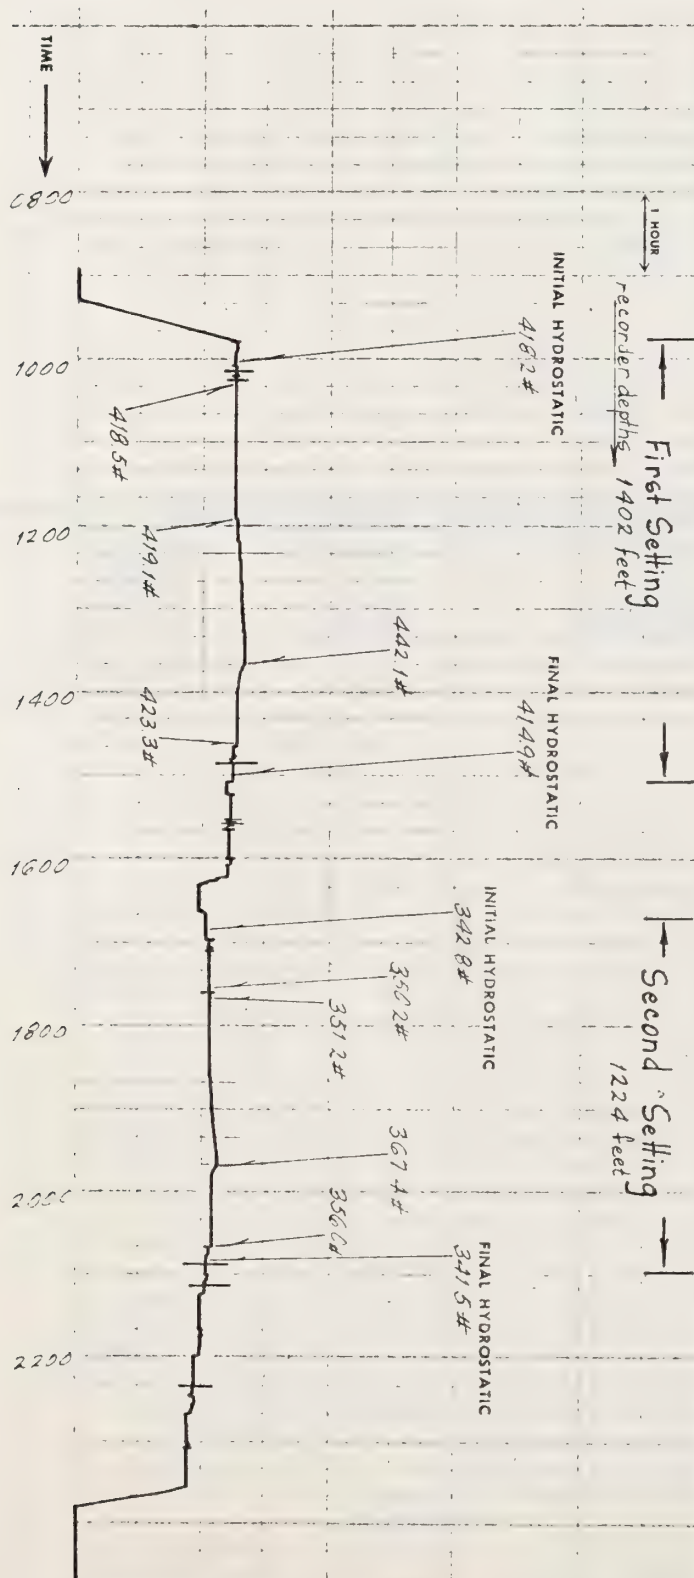 TIME
0800
1000
1200
1400
1600
1800
2000
2200
1 HOUR
recorder depths
First Setting
1402 feet
INITIAL HYDROSTATIC
418.2#
418.5#
419.1#
442.1#
423.3#
FINAL HYDROSTATIC
414.9#
Second Setting
1224 feet
INITIAL HYDROSTATIC
342 8#
350 2#
351 2#
367 4#
356 6#
FINAL HYDROSTATIC
341 5#